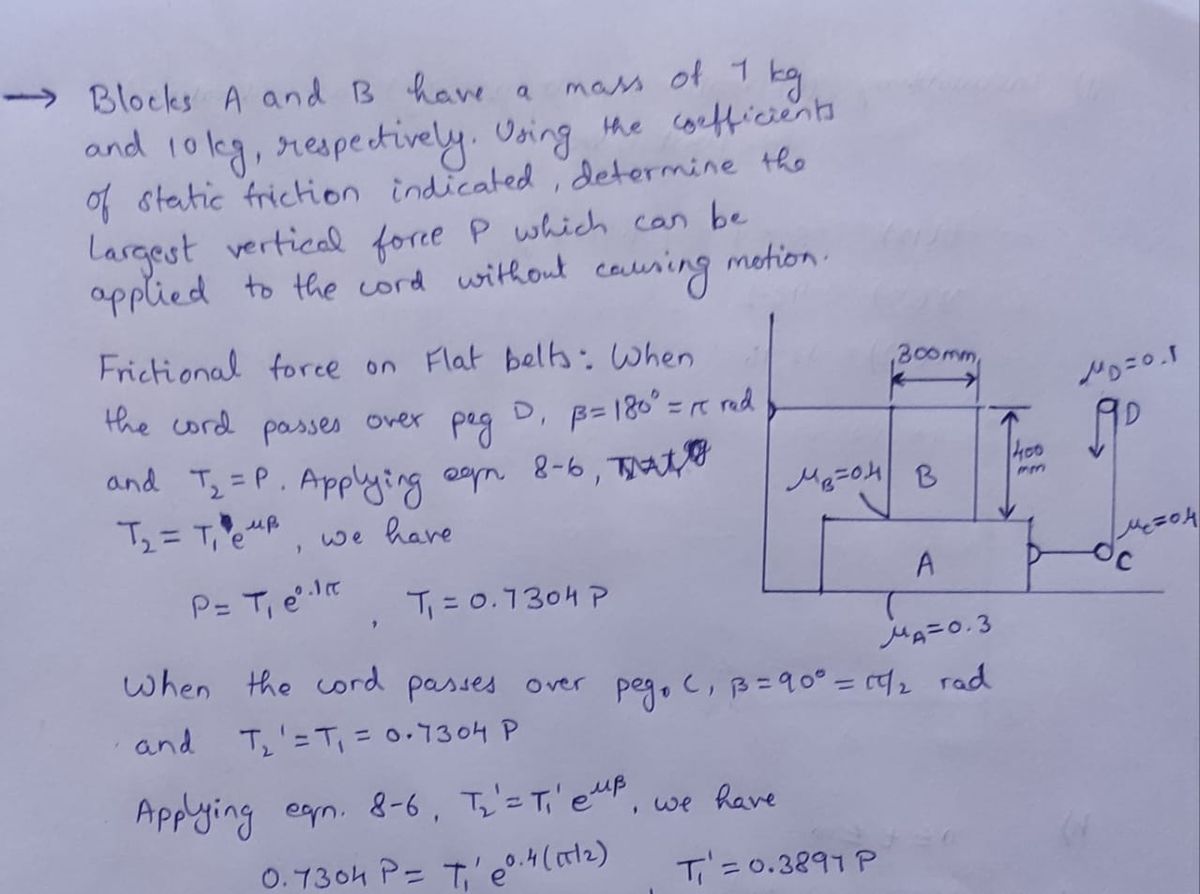 → Blocks A and B have a mass of 7 kg
and 10kg, respectively. Using the coefficients
of static friction indicated, determine the
Largest vertical force P which can be
applied to the cord without causing motion.
Frictional force on Flat belts: When
the cord passes over peg D, β=180°=π rad
and T₂=P. Applying eqn 8-6,
T₂ = T₁e^μβ, we have
P= T₁ e^0.1π, T₁ = 0.7304 P
300mm
μD=0.1
D
400
mm
μB=0.4
B
μC=0.4
A
C
μA=0.3
When the cord passes over peg C, β=90°=π/2 rad
and T₂'=T₁ = 0.7304 P
Applying eqn. 8-6, T₂'=T₁' e^μβ, we have
0.7304 P= T₁' e^0.4(π/2), T₁'=0.3897 P